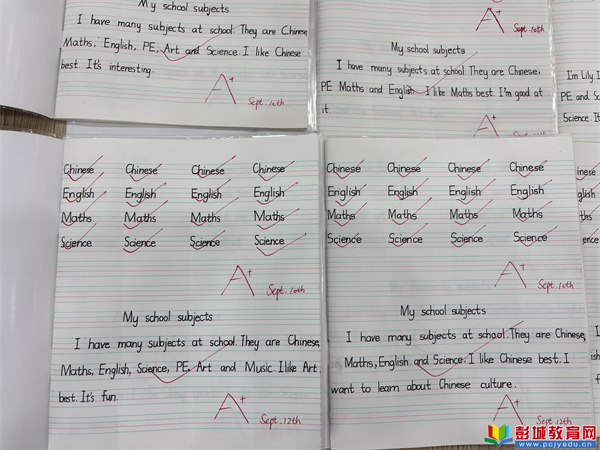 My school subjects
I have many subjects at school. They are Chinese,
Maths, English, PE, Art and Science. I like Chinese
best. It's interesting.
A+
Sept. 10th
A+
Sept. 10th
My school subjects
I have many subjects at school. They are Chinese,
PE Maths and English. I like Maths best. I'm good at
it.
A+
I'm Lily I
PE and Sc
Science. It
Chinese Chinese Chinese Chinese
English English English English
Maths Maths Maths Maths
Science Science Science Science
A+
Sept. 10th
My school subjects
I have many subjects at school. They are Chinese,
Maths, English, Science, PE, Art and Music. I like Art
best. It's fun.
A+
Sept. 12th
Chinese Chinese Chinese Chinese
English English English English
Maths Maths Maths Maths
Science Science Science Science
A+
Sept. 10th
My school subjects
I have many subjects at school. They are Chinese,
Maths, English and Science. I like Chinese best. I
want to learn about Chinese culture.
A+
Sept. 12th
彭城教育网
www.pcjyedu.cn